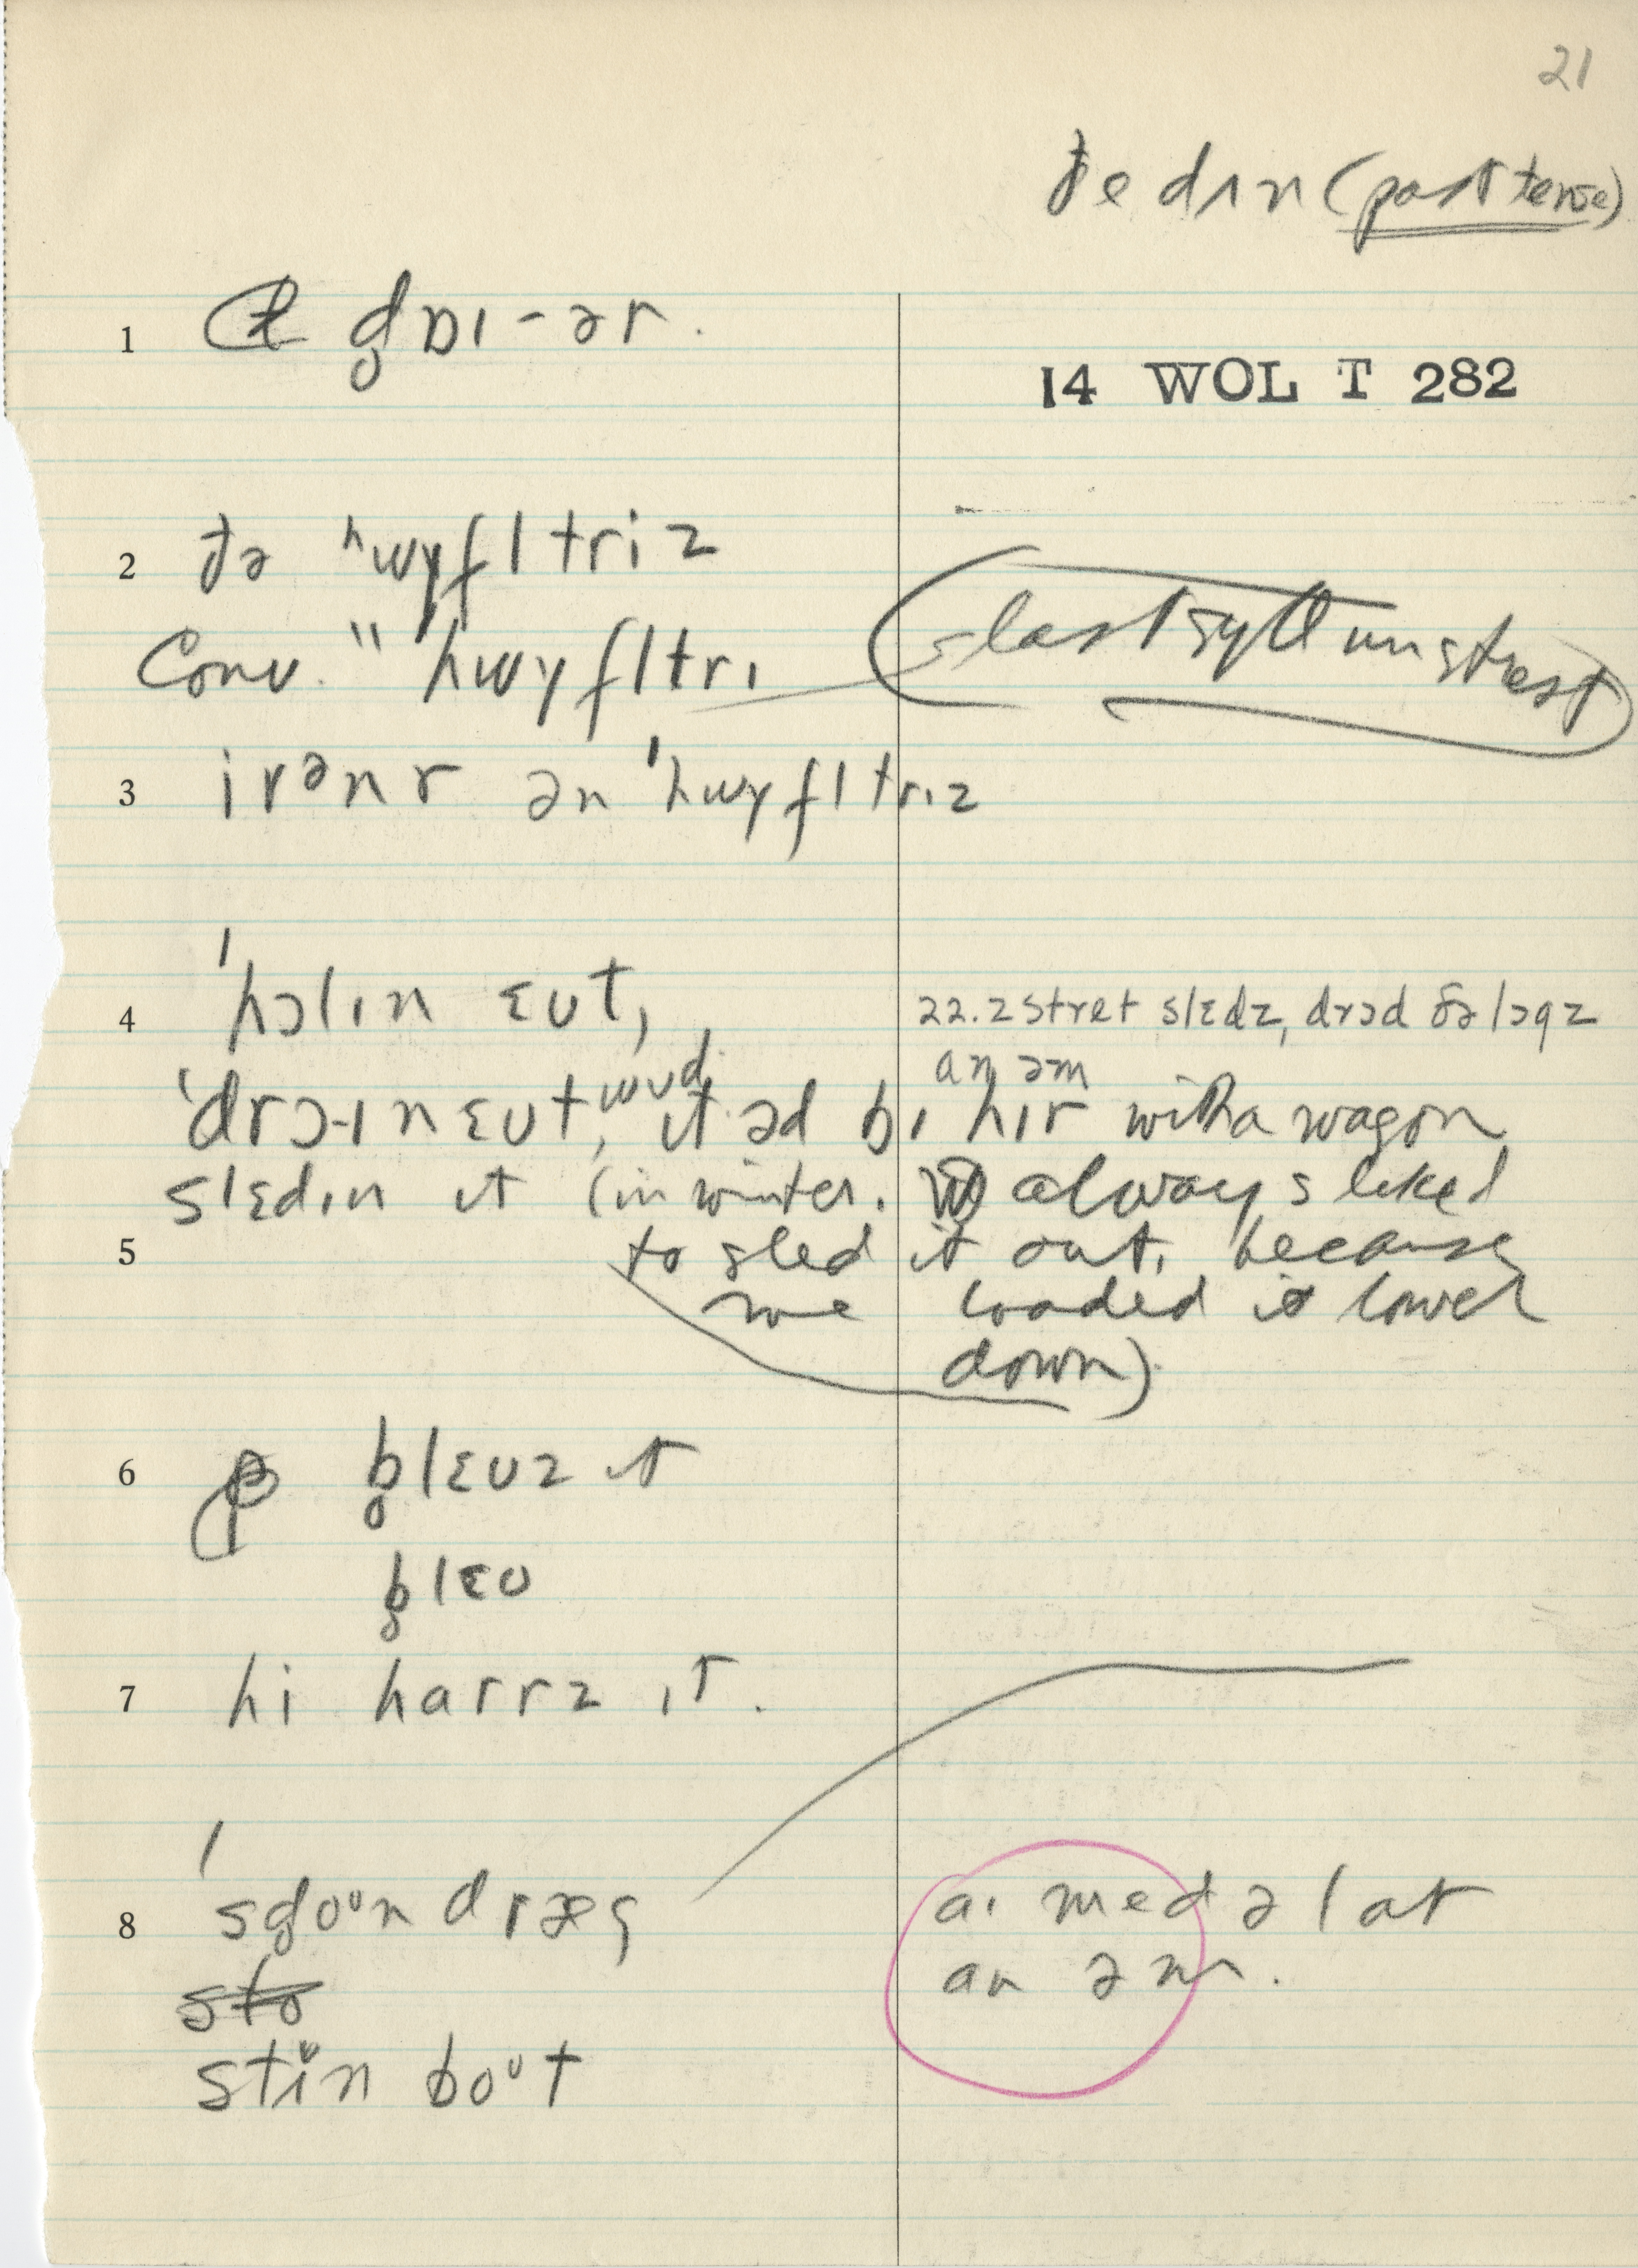 21
ðe dɪn (past tense)
1 g̥ɒɪ-ər.
14 WOL T 282
2 ðə ʰwyfltriz
Conv. " hwyfltrɪ
last syll unstrest
3 irənr ən ˈhwyfltrɪz
4 ˈhɔlɪn ɛʊt,
22.2 stret slɛdz, drɔd ðə lɔgz
an əm
ˈdrɔ-ɪn ɛʊt, wʊd ɪt əd bɪ hɪr with a wagon
slɛdɪn ɪt (in winter. always liked
5 to sled it out, because
we loaded it lower
down).
6 b̥lɛʊz ɪt
b̥lɛʊ
7 hi harrz ɪt.
8 ˈsg̥oᶷn dræg
aɪ med ə lat
an əm.
sto
stin boᶷt